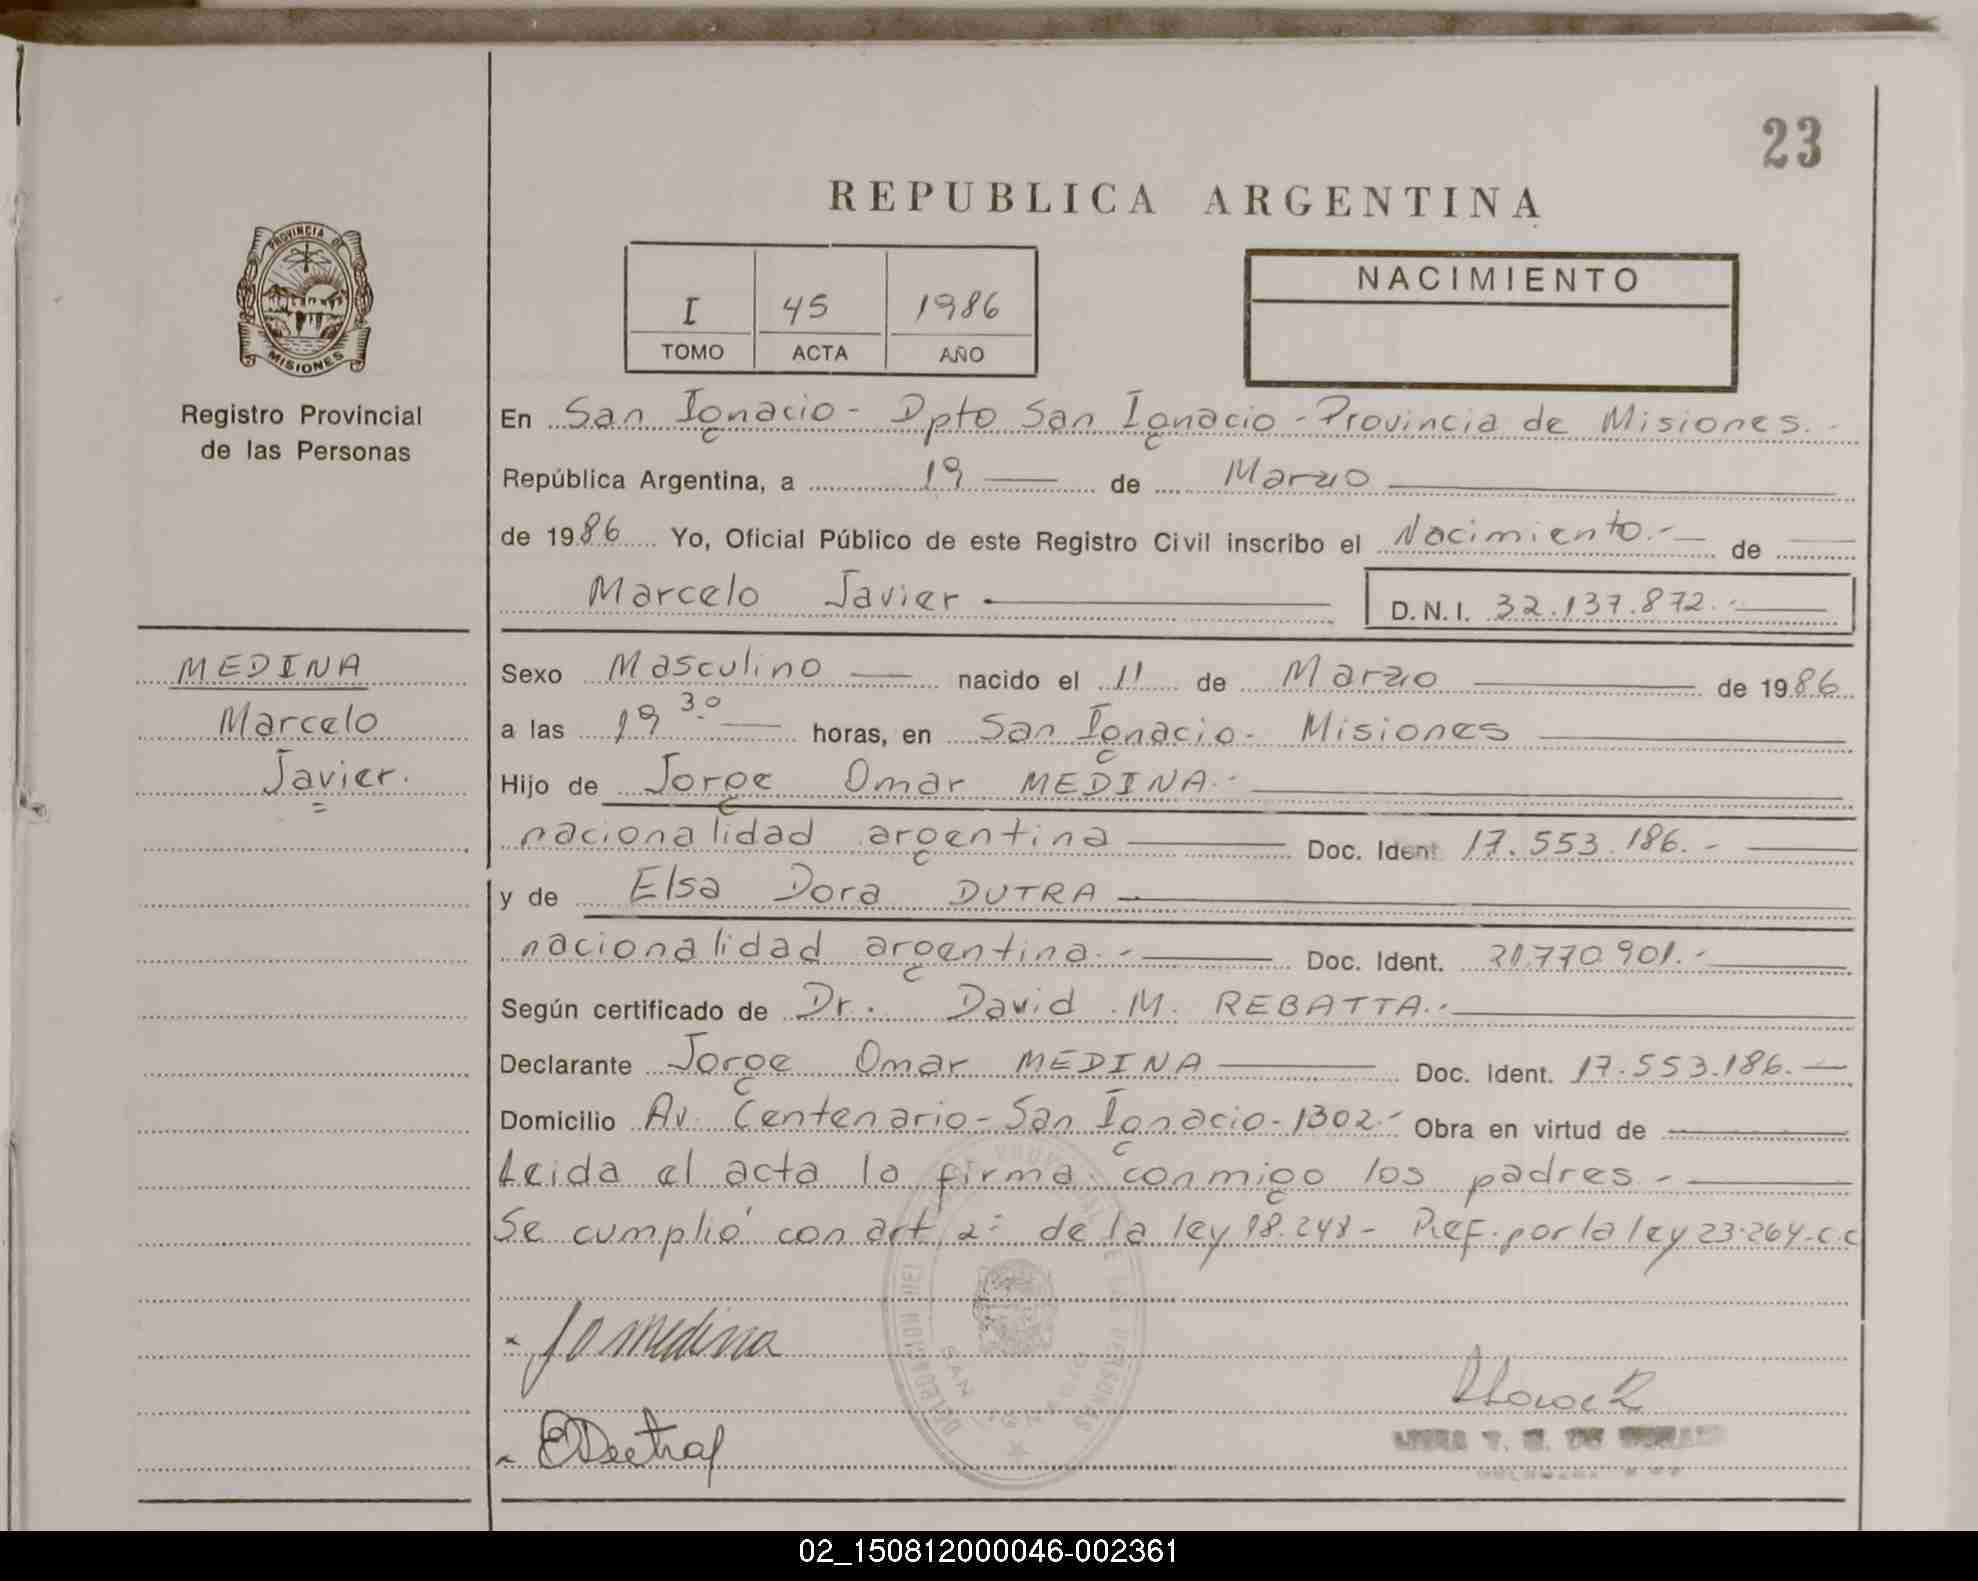 23
REPUBLICA ARGENTINA
PROVINCIA DE
MISIONES
Registro Provincial
de las Personas
I 45 1986
TOMO ACTA AÑO
NACIMIENTO
En San Ignacio - Dpto San Ignacio - Provincia de Misiones. -
República Argentina, a 19 de Marzo
de 1986 Yo, Oficial Público de este Registro Civil inscribo el Nacimiento.- de
Marcelo Javier D.N.I. 32.137.872.-
MEDINA
Marcelo
Javier.
Sexo Masculino nacido el 11 de Marzo de 1986
a las 19 30 horas, en San Ignacio - Misiones
Hijo de Jorge Omar MEDINA.-
nacionalidad argentina Doc. Ident 17.553.186.-
y de Elsa Dora DUTRA
nacionalidad argentina.- Doc. Ident. 21.770.901.-
Según certificado de Dr. David M. REBATTA.-
Declarante Jorge Omar MEDINA Doc. Ident. 17.553.186.-
Domicilio Av. Centenario - San Ignacio - 1302.- Obra en virtud de
Leida el acta la firma conmigo los padres.-
Se cumplió con art. 2º de la ley 18.248 - Ref. por la ley 23.264.C.C
J O Medina
02_150812000046-002361